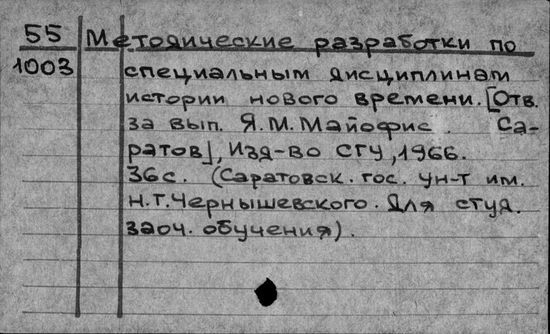 55 Методические разработки по
1003 специальным дисциплинам
истории нового времени. [Отв.
за вып. Я.М. Майофис. Са-
ратов], Изд-во СГУ, 1966.
36с. (Саратовск. гос. ун-т им.
Н.Г. Чернышевского. Для студ.
заоч. обучения).